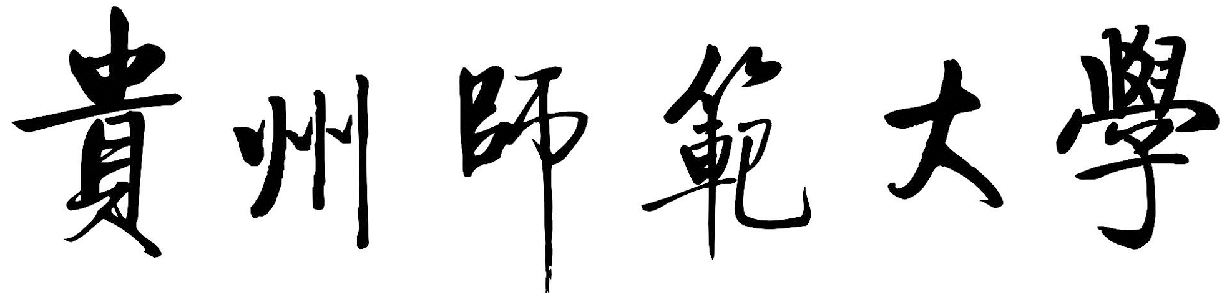 貴州師範大學